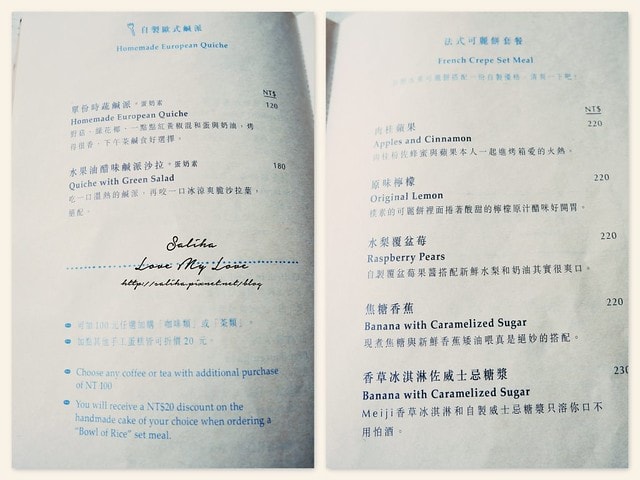 自製歐式鹹派
Homemade European Quiche
NT$
單份時蔬鹹派 *蛋奶素 120
Homemade European Quiche
得很香，下午茶鹹食好選擇。
水果油醋味鹹派沙拉 *蛋奶素 180
Quiche with Green Salad
吃一口溫熱的鹹派，再咬一口冰涼爽脆沙拉葉，
搭配。
Saliha
Love My Love
http://saliha.pixnet.net/blog
可加100元任選加購「咖啡類」或「茶類」。
加點其他手工蛋糕皆可折價 20 元。
Choose any coffee or tea with additional purchase
of NT 100
You will receive a NT$20 discount on the
handmade cake of your choice when ordering a
"Bowl of Rice" set meal.
法式可麗餅套餐
French Crepe Set Meal
NT$
肉桂蘋果 220
Apples and Cinnamon
肉桂粉佐蜂蜜與蘋果本人一起進烤箱愛的火熱。
原味檸檬 220
Original Lemon
樸素的可麗餅裡面捲著酸甜的檸檬原汁醋味好開胃。
水梨覆盆莓 220
Raspberry Pears
自製覆盆莓果醬搭配新鮮水梨和奶油其實很爽口。
焦糖香蕉 220
Banana with Caramelized Sugar
現煮焦糖與新鮮香蕉矮油喂真是絕妙的搭配。
香草冰淇淋佐威士忌糖漿 230
Banana with Caramelized Sugar
Meiji香草冰淇淋和自製威士忌糖漿只溶你口不
用怕酒。